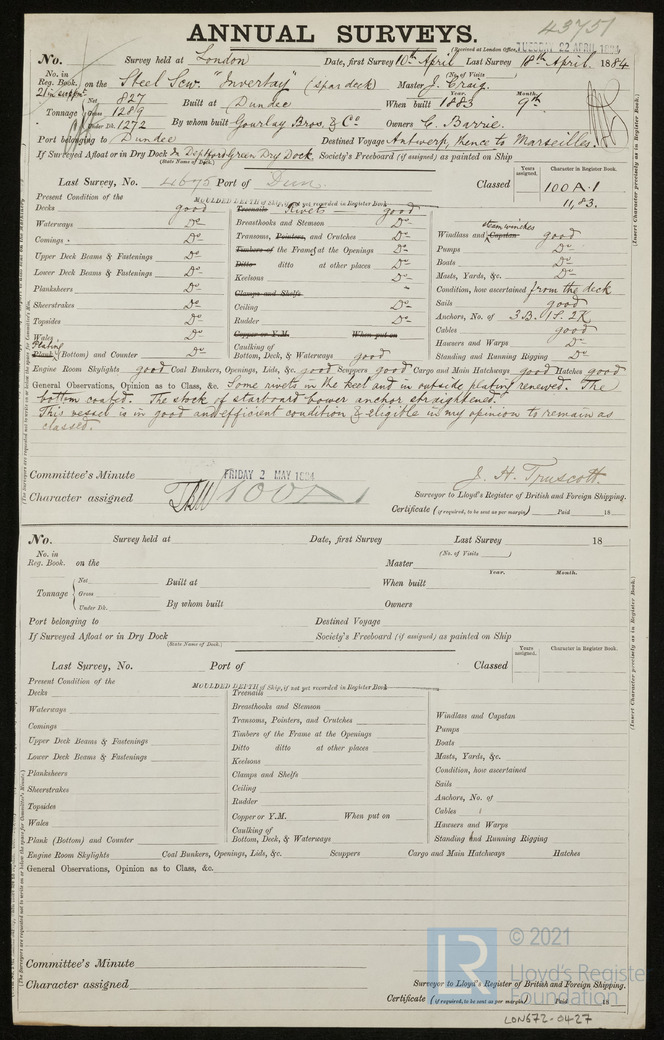 43751
ANNUAL SURVEYS.
(Received at London Office, TUESDAY 22 APRIL 1884
No. Survey held at London Date, first Survey 10th April Last Survey 18th April 1884
(No. of Visits )
No. in Reg. Book. on the Steel Scw. "Inverbay" (spar deck) Master J. Craig.
21 in suppmt
Year. Month.
Tonnage Net 827 Built at Dundee When built 1883 9th
Gross 1289
Under Dk. 1272 By whom built Gourlay Bros. & Co Owners C. Barrie.
Port belonging to Dundee Destined Voyage Antwerp, thence to Marseilles.
If Surveyed Afloat or in Dry Dock In Deptford Green Dry Dock Society's Freeboard (if assigned) as painted on Ship
(State Name of Dock.)
Years assigned. Character in Register Book.
Last Survey, No. 4675 Port of Dun Classed 100 A.1
11,83.
Present Condition of the
MOULDED DEPTH of Ship, if not yet recorded in Register Book
Decks good
Waterways Do
Comings Do
Upper Deck Beams & Fastenings Do
Lower Deck Beams & Fastenings Do
Planksheers Do
Sheerstrakes Do
Topsides Do
Wales Do
Plating
Plank (Bottom) and Counter Do
Treenails Rivets good
Breasthooks and Stemson Do
Transoms, Pointers, and Crutches Do
Timbers of the Frames at the Openings Do
Ditto ditto at other places Do
Keelsons Do
Clamps and Shelfs "
Ceiling Do
Rudder Do
Copper or Y.M. When put on
Caulking of Bottom, Deck, & Waterways good
steam winches
Windlass and Capstan good
Pumps Do
Boats Do
Masts, Yards, &c. Do
Condition, how ascertained from the deck
Sails good
Anchors, No. of 3 B. 1 S. 2 K
Cables good
Hawsers and Warps Do
Standing and Running Rigging Do
Engine Room Skylights good Coal Bunkers, Openings, Lids, &c. good Scuppers good Cargo and Main Hatchways good Hatches good
General Observations, Opinion as to Class, &c. Some rivets in the keel and in outside plating renewed. The
bottom coated. The stock of starboard bower anchor straightened.
This vessel is in good and efficient condition & eligible in my opinion to remain as
classed.
Committee's Minute FRIDAY 2 MAY 1884
Character assigned 100 A 1
J. H. Truscott.
Surveyor to Lloyd's Register of British and Foreign Shipping.
Certificate (if required, to be sent as per margin) Paid 18
(Insert Character precisely as in Register Book.)
No. Survey held at Date, first Survey Last Survey 18
(No. of Visits )
No. in Reg. Book. on the Master
Year. Month.
Tonnage Net Built at When built
Gross
Under Dk. By whom built Owners
Port belonging to Destined Voyage
If Surveyed Afloat or in Dry Dock Society's Freeboard (if assigned) as painted on Ship
(State Name of Dock.)
Years assigned. Character in Register Book.
Last Survey, No. Port of Classed
Present Condition of the
MOULDED DEPTH of Ship, if not yet recorded in Register Book
Decks
Waterways
Comings
Upper Deck Beams & Fastenings
Lower Deck Beams & Fastenings
Planksheers
Sheerstrakes
Topsides
Wales
Plank (Bottom) and Counter
Treenails
Breasthooks and Stemson
Transoms, Pointers, and Crutches
Timbers of the Frame at the Openings
Ditto ditto at other places
Keelsons
Clamps and Shelfs
Ceiling
Rudder
Copper or Y.M. When put on
Caulking of Bottom, Deck, & Waterways
Windlass and Capstan
Pumps
Boats
Masts, Yards, &c.
Condition, how ascertained
Sails
Anchors, No. of
Cables
Hawsers and Warps
Standing and Running Rigging
Engine Room Skylights Coal Bunkers, Openings, Lids, &c. Scuppers Cargo and Main Hatchways Hatches
General Observations, Opinion as to Class, &c.
(Insert Character precisely as in Register Book.)
Committee's Minute
Character assigned
Surveyor to Lloyd's Register of British and Foreign Shipping.
Certificate (if required, to be sent as per margin) Paid 18
LR © 2021
Lloyd's Register
Foundation
LON672-0427